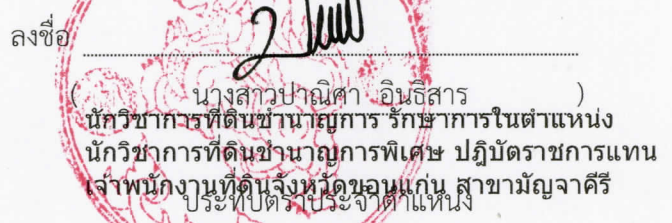 ลงชื่อ
( นางสาวปาณิศา อินธิสาร )
นักวิชาการที่ดินชำนาญการ รักษาการในตำแหน่ง
นักวิชาการที่ดินชำนาญการพิเศษ ปฏิบัติราชการแทน
เจ้าพนักงานที่ดินจังหวัดขอนแก่น สาขามัญจาคีรี
ประทับตราประจำตำแหน่ง